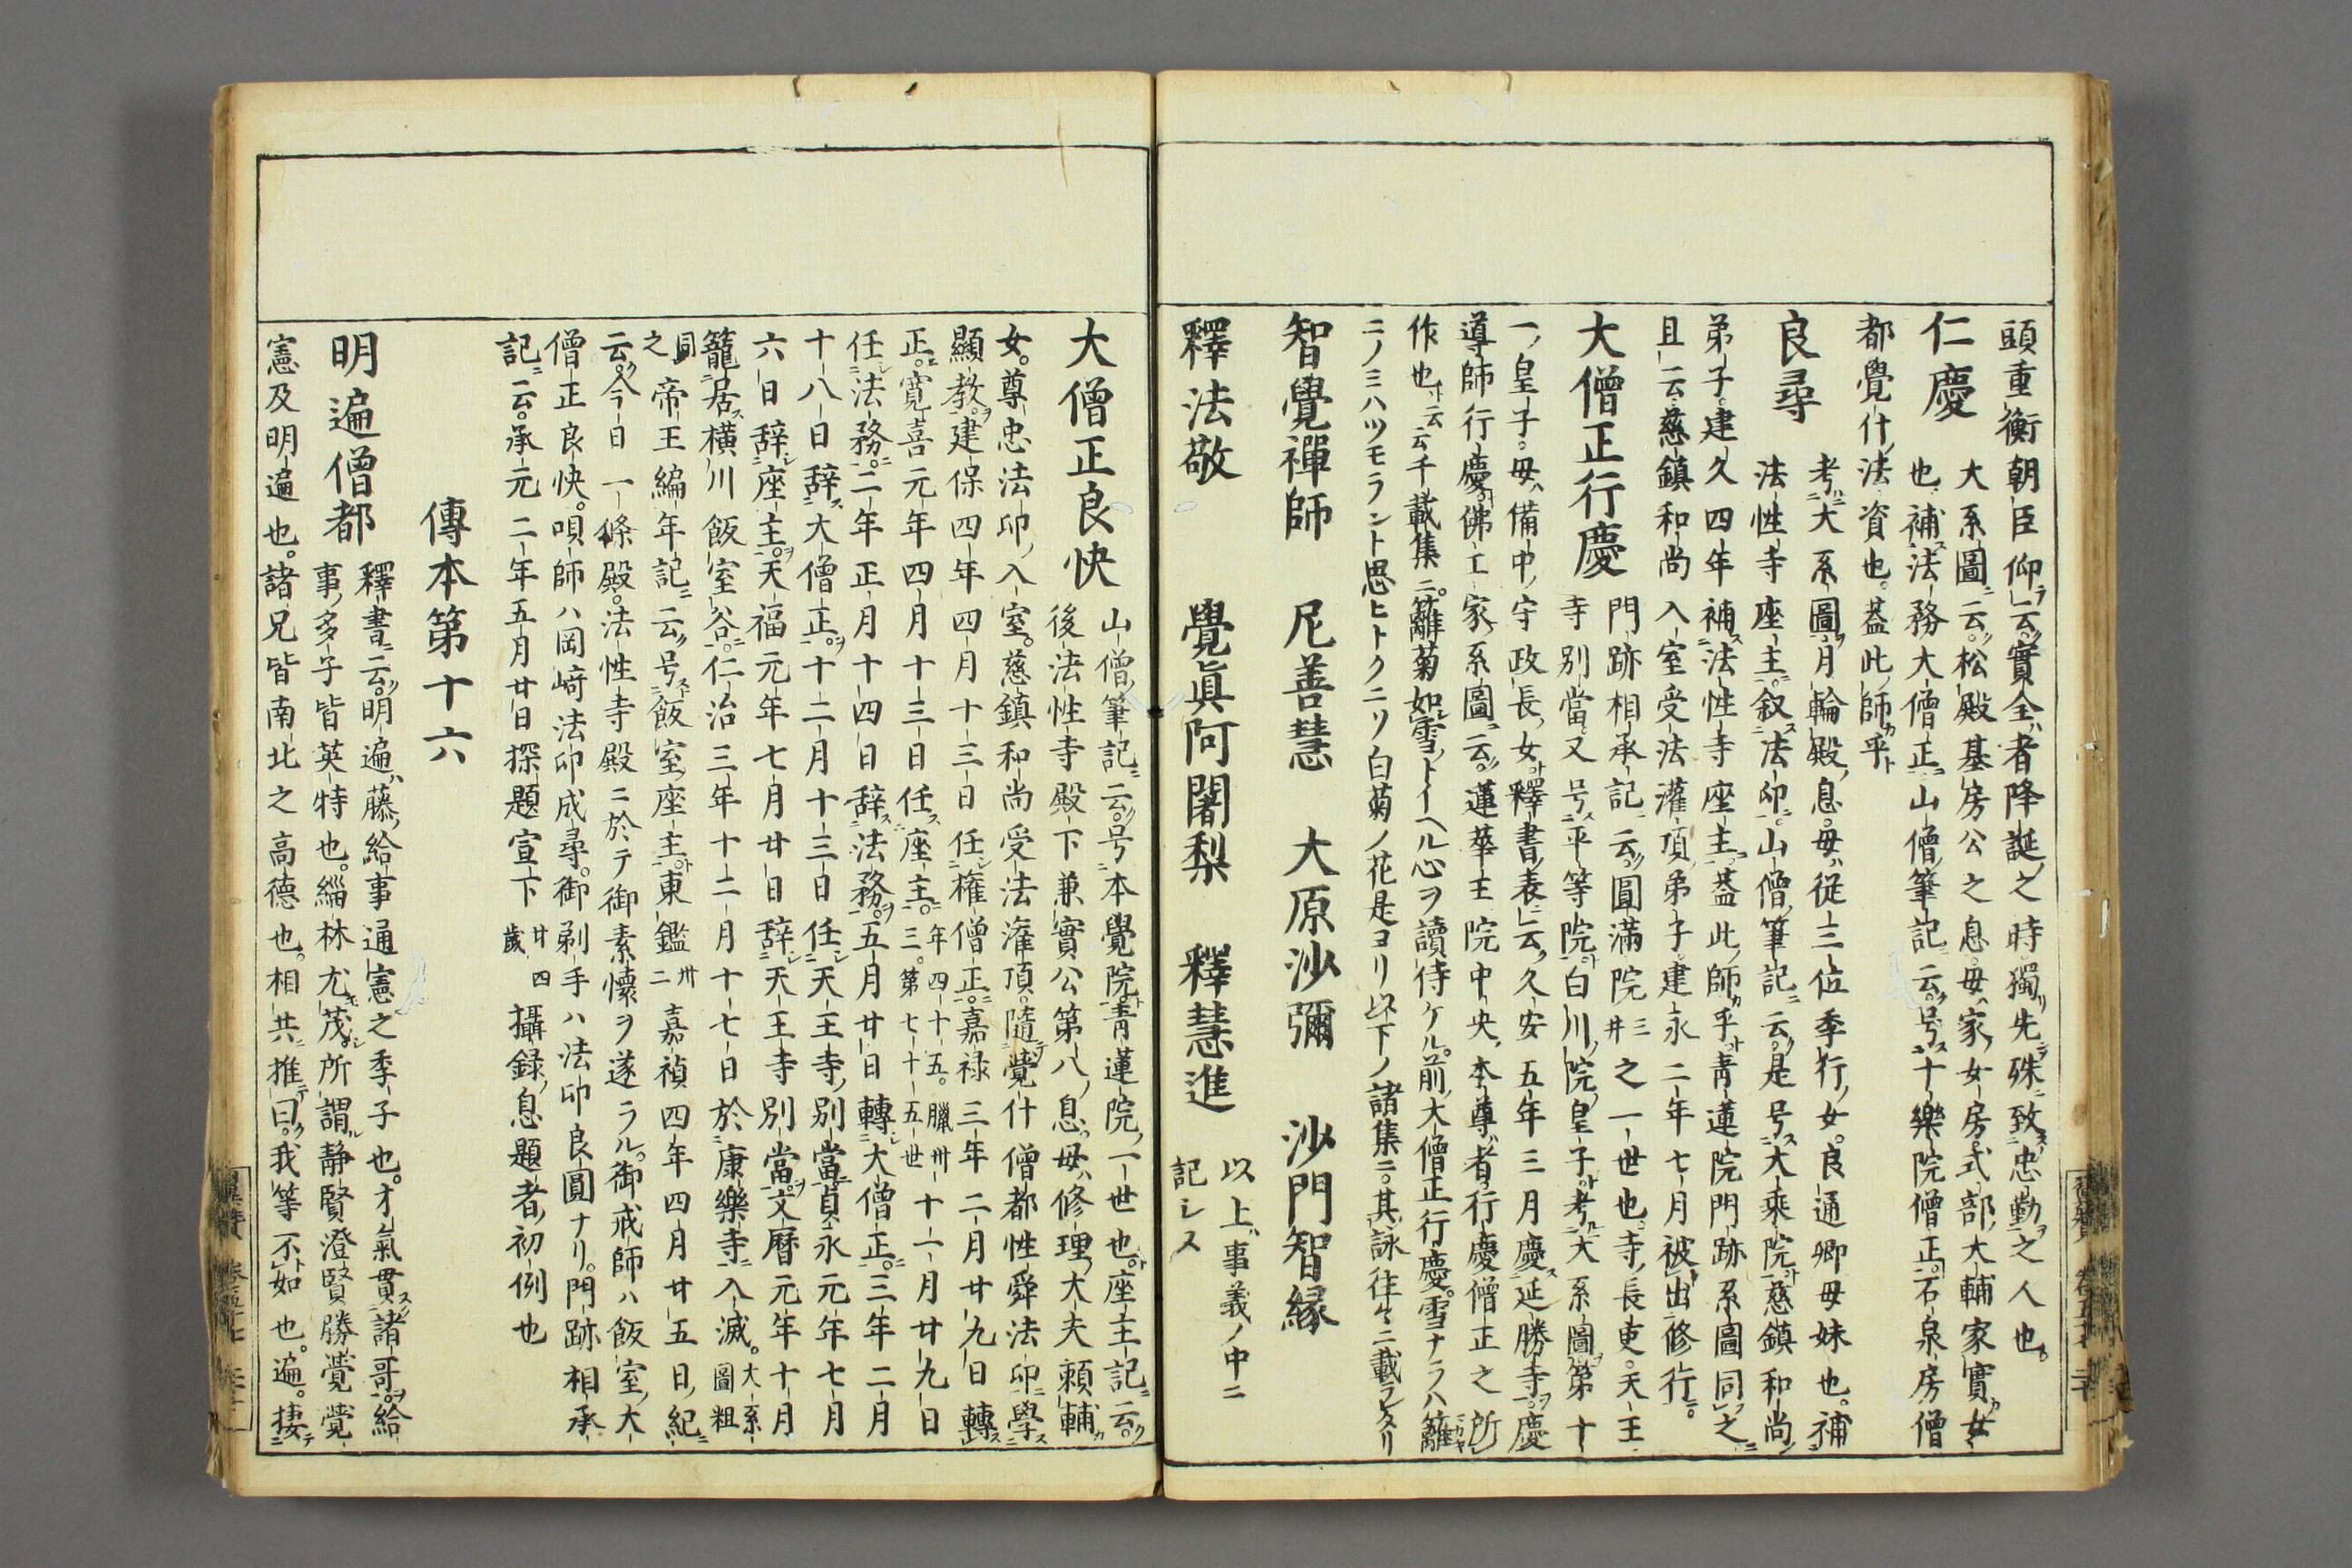 頭重衡朝臣仰云實全者降誕之時獨先殊致忠勤之人也
仁慶
大系圖云松殿基房公之息母家女房式部大輔家實女
也補法務大僧正山僧筆記云号十樂院僧正石泉房僧
都覺什法資也蓋此師乎
良尋
考大系圖月輪殿息母從三位季行女良通卿母妹也補
法性寺座主叙法印山僧筆記云是号大乘院慈鎮和尚
弟子建久四年補法性寺座主蓋此師乎青蓮院門跡系圖同之
且云慈鎮和尚入室受法灌頂弟子建永二年七月被出修行
大僧正行慶
門跡相承記云圓滿院三井之一世也寺長吏天王
寺別當又号平等院白川院皇子考大系圖第十
一皇子母備中守政長女釋書表云久安五年三月慶延勝寺慶
導師行慶佛工家系圖云蓮華王院中央本尊者行慶僧正之所
作也云云千載集ニ籬菊如雪トイヘル心ヲ讀侍ケル前大僧正行慶雪ナラハ籬
ニノミハツモラント思ヒトクニソ白菊ノ花是ヨリ以下ノ諸集ニ其詠往々ニ載ラレタリ
智覺禪師　尼善慧　大原沙彌　沙門智縁
釋法敬　覺眞阿闍梨　釋慧進
以上事義ノ中ニ
記レス
大僧正良快
山僧筆記云号本覺院青蓮院一世也座主記云
後法性寺殿下兼實公第八息母修理大夫頼輔
女尊忠法印入室慈鎮和尚受法灌頂隨覺什僧都性舜法印學
顯教建保四年四月十三日任權僧正嘉禄三年二月廿九日轉
正寛喜元年四月十三日任座主年四十五臘卅三第七十五世十一月廿九日
任法務二年正月十四日辞法務五月廿日轉大僧正三年二月
十八日辞大僧正十二月十三日任天王寺別當貞永元年七月
六日辞座主天福元年七月廿日辞天王寺別當文曆元年十月
籠居橫川飯室谷仁治三年十二月十七日於康樂寺入滅大系圖粗
同之帝王編年記云号飯室座主東鑑卅二嘉禎四年四月廿五日紀
云今日一條殿法性寺殿ニ於テ御素懷ヲ遂ラル御戒師ハ飯室大
僧正良快唄師ハ岡﨑法印成尋御剃手ハ法印良圓ナリ門跡相承
記云承元二年五月廿日探題宣下廿四歲攝録息題者初例也
傳本第十六
明遍僧都
釋書云明遍藤給事通憲之季子也才氣貫諸哥給
事多子皆英特也緇林尤茂所謂静賢澄賢勝覺覺
憲及明遍也諸兄皆南北之高德也相共推曰我等不如也遍捿